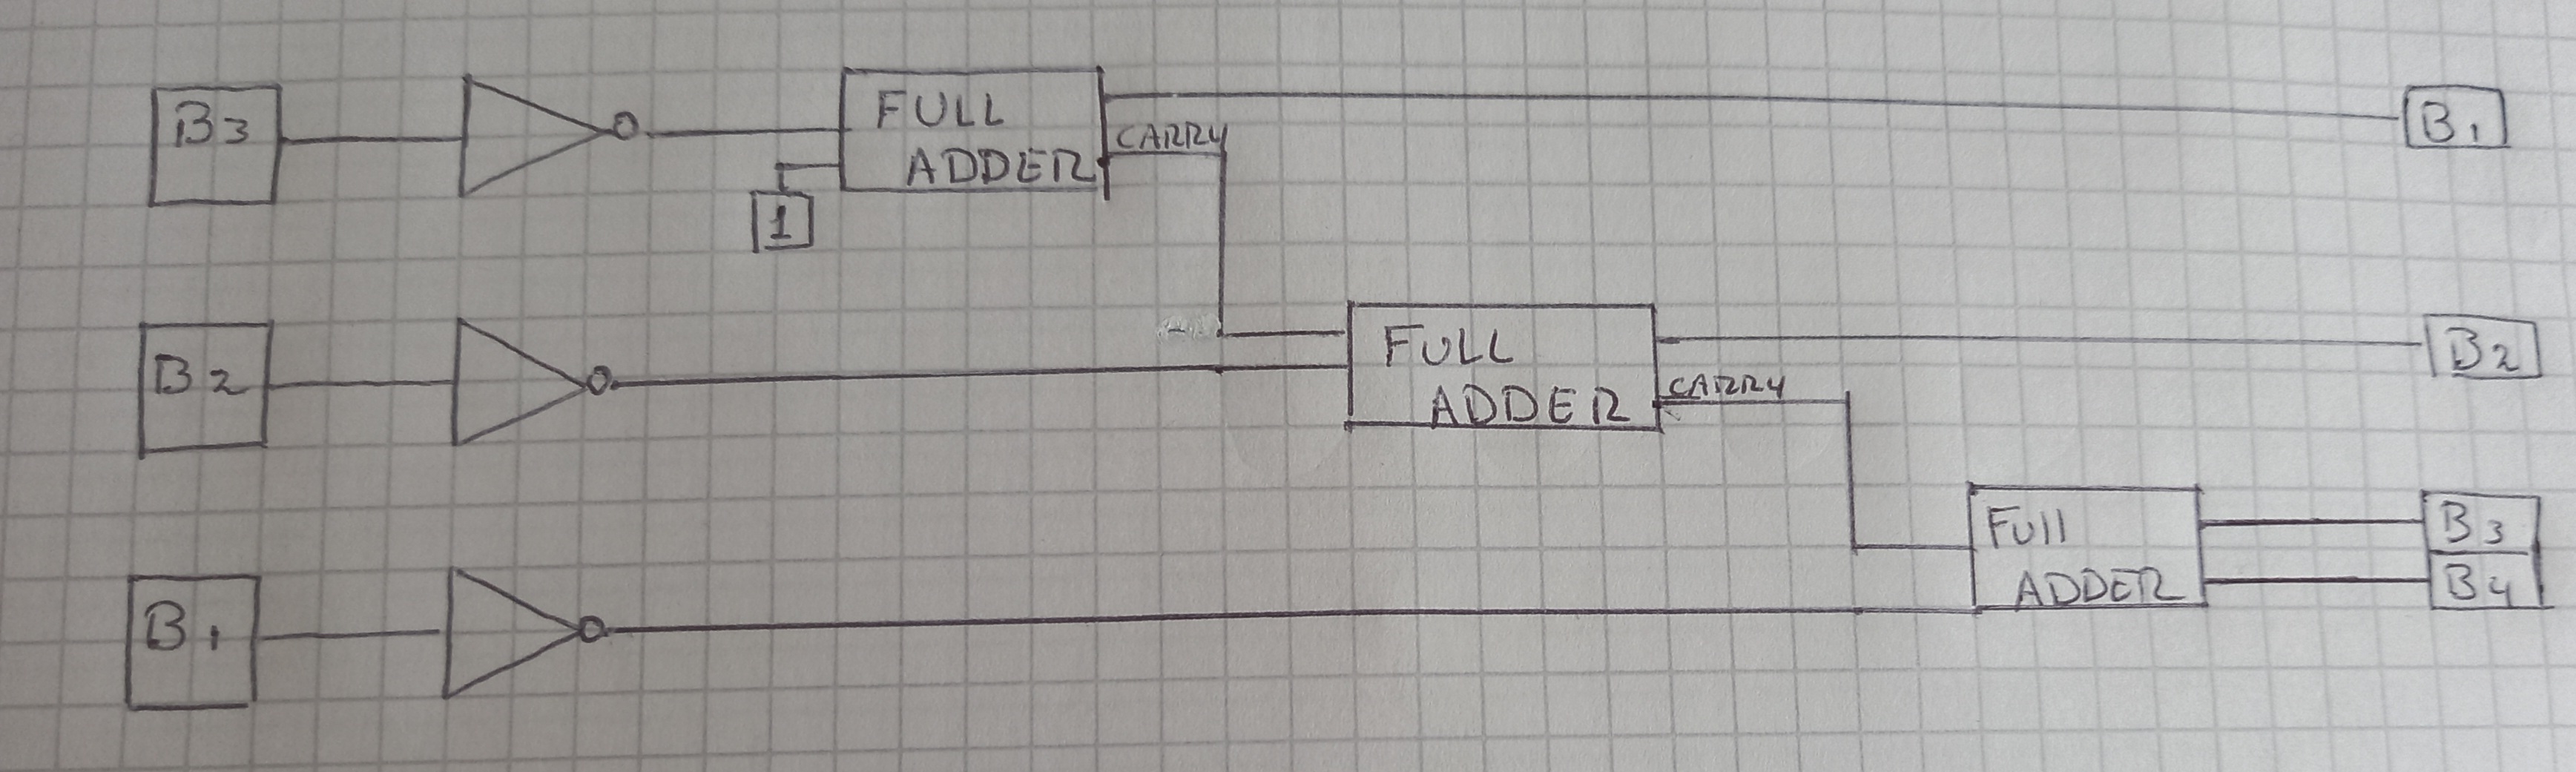 B3
FULL
ADDER
CARRY
1
B1
B2
FULL
ADDER
CARRY
B2
B1
Full
ADDER
B3
B4